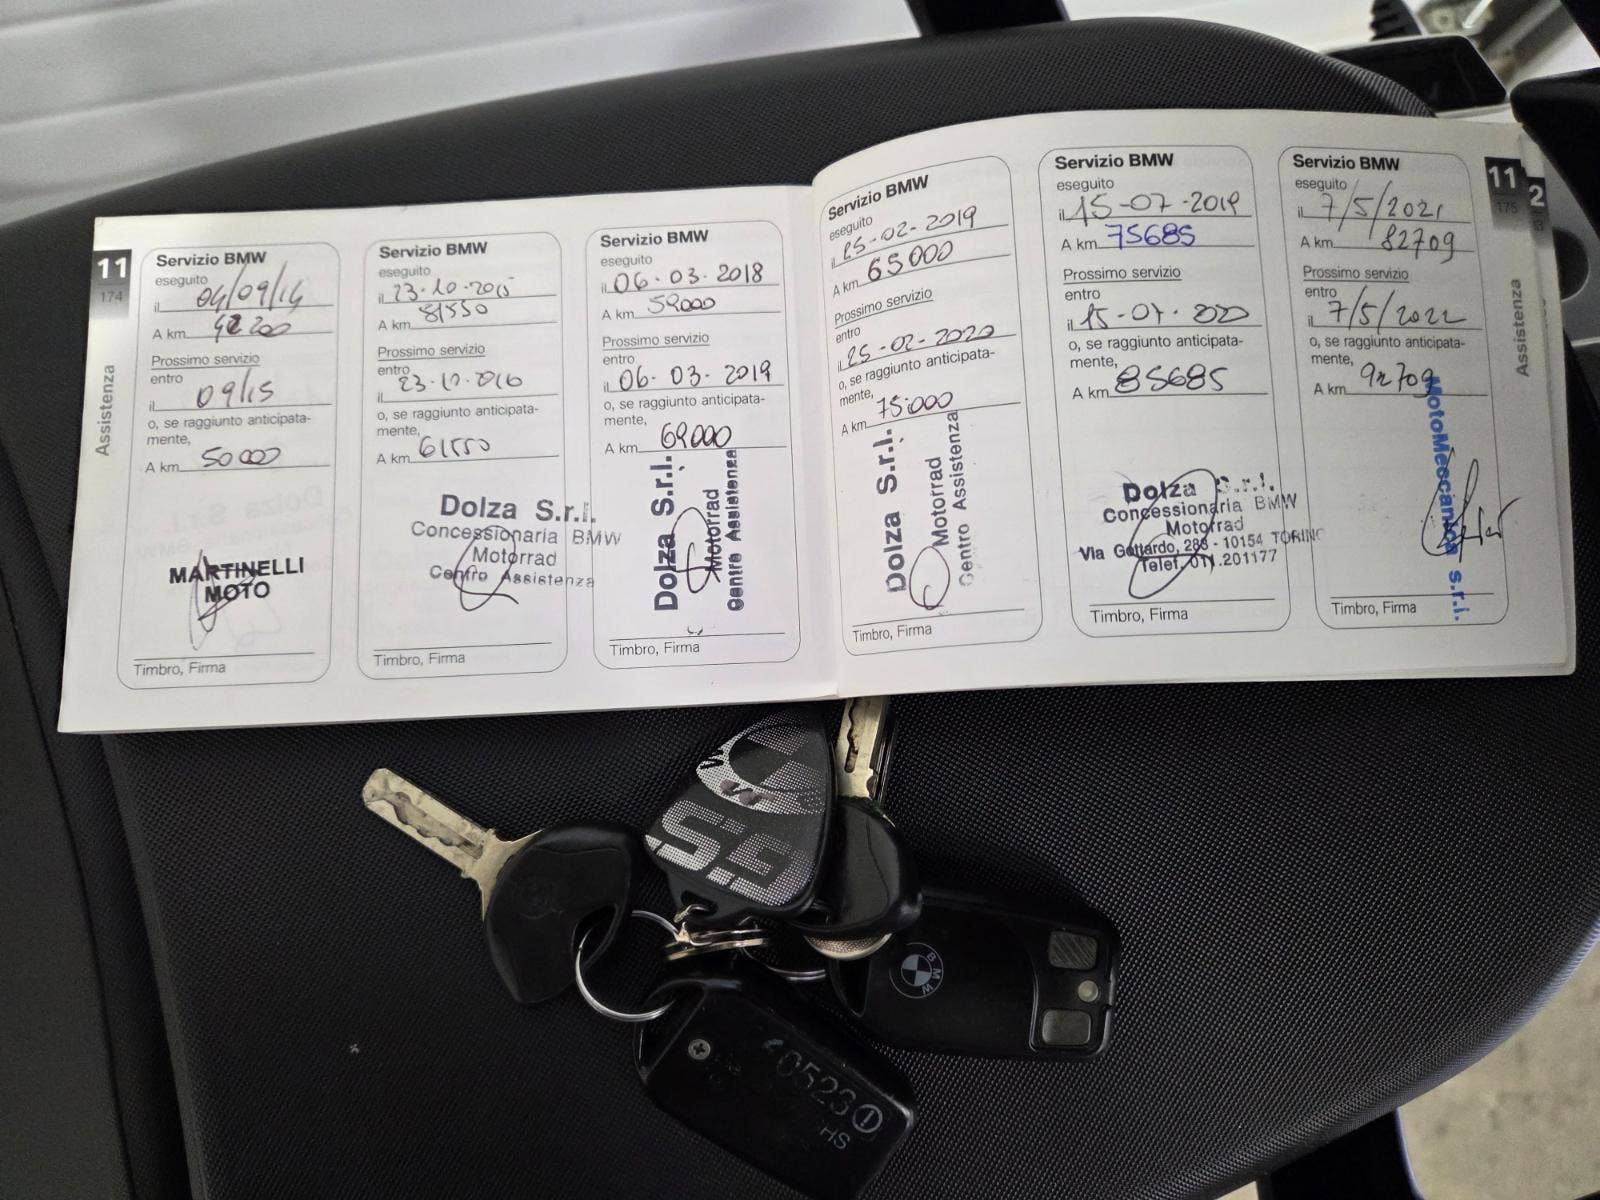 11
174
Assistenza
Servizio BMW
eseguito
il 04/09/14
A km 42200
Prossimo servizio
entro
il 09/15
o, se raggiunto anticipata-
mente,
A km 50000
MARTINELLI
MOTO
Timbro, Firma
Servizio BMW
eseguito
il 23-10-2015
A km 81550
Prossimo servizio
entro
il 23-10-2016
o, se raggiunto anticipata-
mente,
A km 61550
Dolza S.r.l.
Concessionaria BMW
Motorrad
Centro Assistenza
Timbro, Firma
Servizio BMW
eseguito
il 06-03-2018
A km 59000
Prossimo servizio
entro
il 06-03-2019
o, se raggiunto anticipata-
mente,
A km 69000
Dolza S.r.l.
Motorrad
Centro Assistenza
Timbro, Firma
Servizio BMW
eseguito
il 25-02-2019
A km 65000
Prossimo servizio
entro
il 25-02-2020
o, se raggiunto anticipata-
mente,
A km 75.000
Dolza S.r.l.
Motorrad
Centro Assistenza
Timbro, Firma
Servizio BMW
eseguito
il 15-07-2019
A km 75685
Prossimo servizio
entro
il 15-07-2020
o, se raggiunto anticipata-
mente,
A km 85685
Dolza S.r.l.
Concessionaria BMW
Motorrad
Via Gottardo, 288 - 10154 TORINO
Telef. 011.201177
Timbro, Firma
Servizio BMW
eseguito
il 7/5/2021
A km 82709
Prossimo servizio
entro
il 7/5/2022
o, se raggiunto anticipata-
mente,
A km 92709
MotoMeccanica s.r.l.
Timbro, Firma
11
175
Assistenza
2
BMW
0523
HS